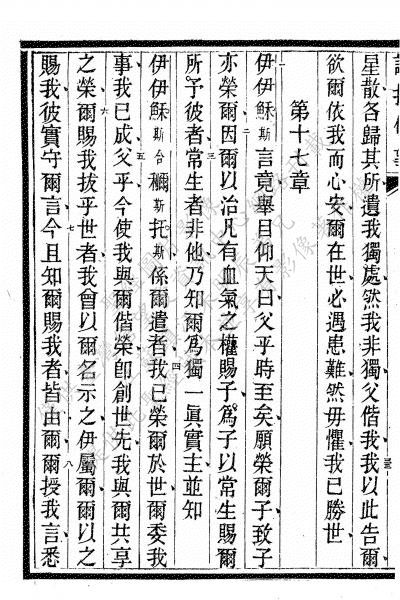 星散各歸其所遺我獨處然我非獨父偕我我以此告爾
欲爾依我而心安爾在世必遇患難然毋懼我已勝世
第十七章
伊伊穌斯言竟舉目仰天曰父乎時至矣願榮爾子致子
亦榮爾因爾以治凡有血氣之權賜子爲子以常生賜爾
所予彼者常生者非他乃知爾爲獨一眞實主並知
伊伊穌斯合穪斯托斯係爾遣者我已榮爾於世爾委我
事我已成父乎今使我與爾偕榮卽創世先我與爾共享
之榮爾賜我拔乎世者我曾以爾名示之伊屬爾爾以之
賜我彼實守爾言今且知爾賜我者皆由爾爾授我言悉